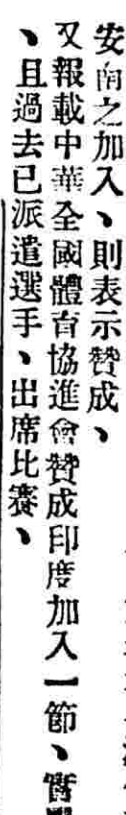 安南之加入、則表示贊成、
又報載中華全國體育協進會贊成印度加入一節、
、且過去已派遣選手、出席比賽、